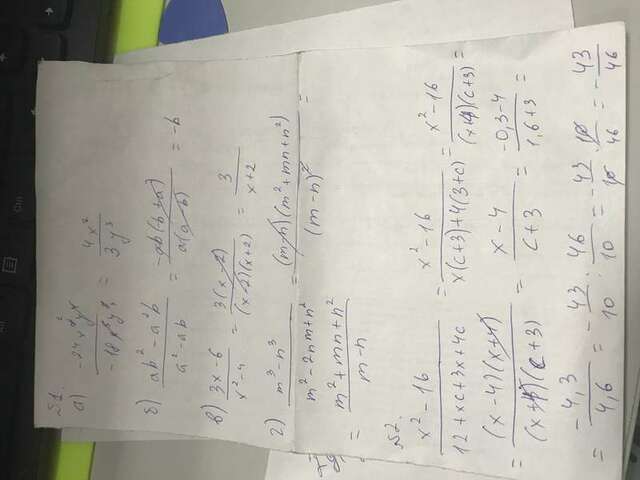 №1.
а) -24x⁷y⁴ / -18x⁵y⁷ = 4x² / 3y³
б) ab² - a²b / a² - ab = -ab(b+a) / a(a-b) = -b
в) 3x-6 / x²-4 = 3(x-2) / (x-2)(x+2) = 3 / x+2
г) m³-n³ / m²-2nm+n² = (m-n)(m²+mn+n²) / (m-n)² =
= m²+mn+n² / m-n
№2.
x²-16 / 12+xc+3x+4c = x²-16 / x(c+3)+4(3+c) = x²-16 / (x+4)(c+3) =
= (x-4)(x+4) / (x+4)(c+3) = x-4 / c+3 = -0,3-4 / 1,6+3 =
= -4,3 / 4,6 = -43/10 : 46/10 = -43/10 · 10/46 = -43/46